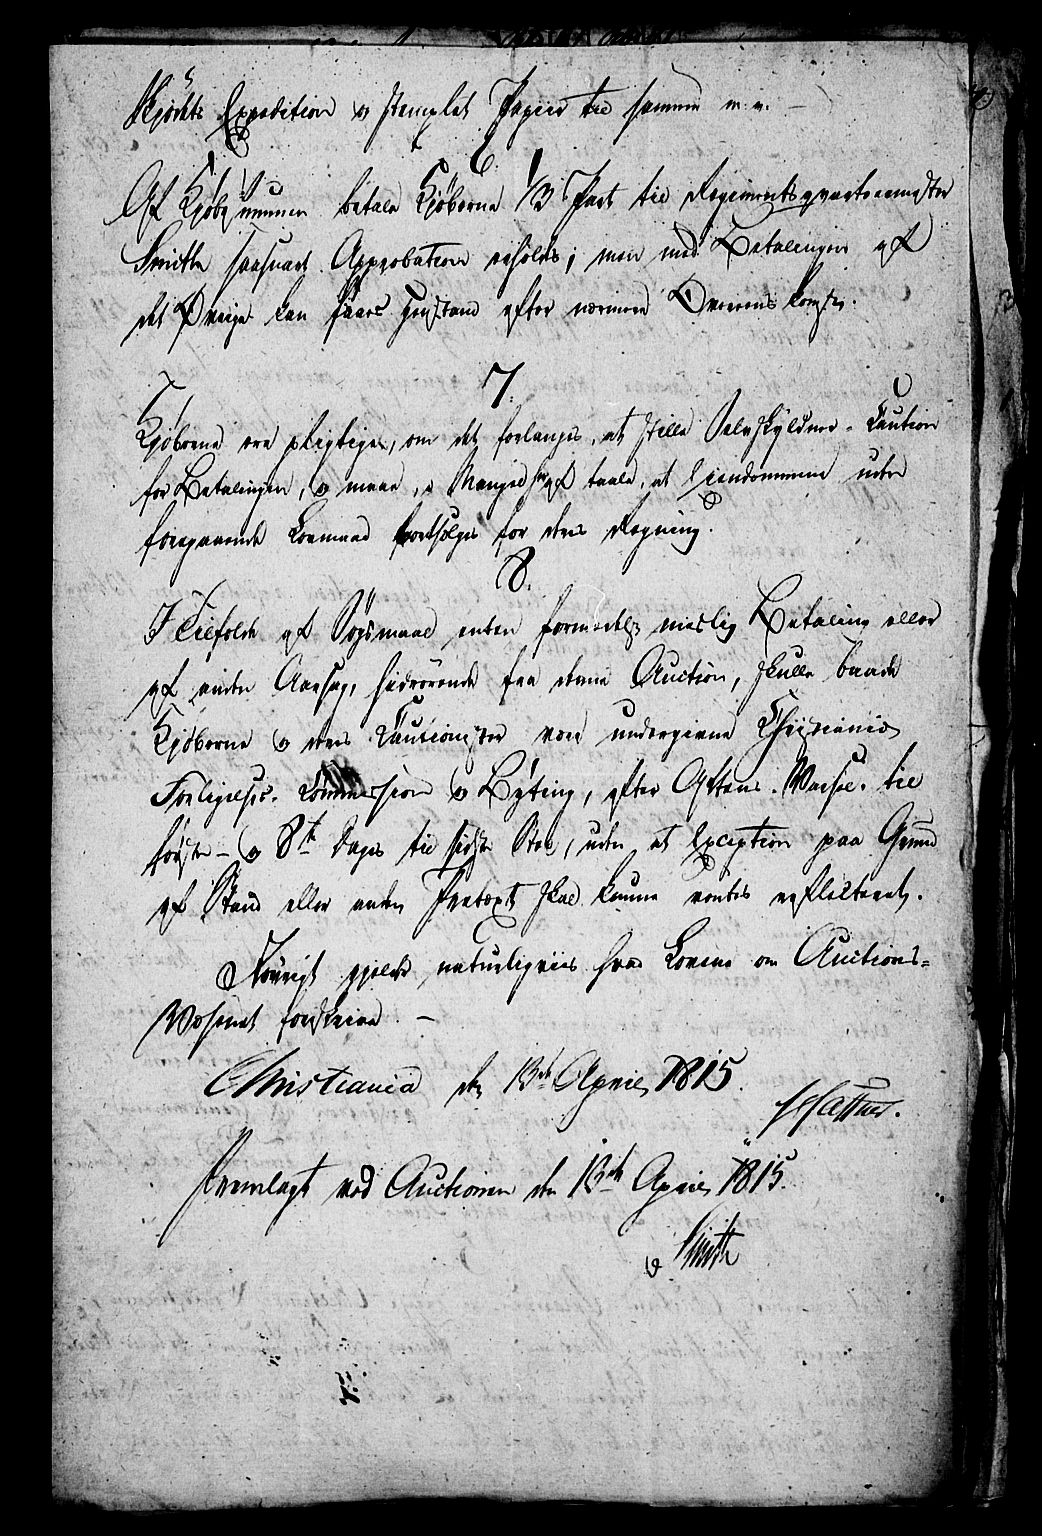 Skjødets Expedition og stemplet Papiir til samme m. v. —
6.
Af Kjøbesummen betale Kjøberne 1/3 Part til Regimentsqvarteermester
Smith saasnart Approbation erholdes; men med Betalingen af
det Øvrige kan haves Henstand efter nærmere Overenskomst.
7.
Kjøberne ere pligtige, om det forlanges, at stille Selvskyldner-Caution
for Betalingen, og maae, i Mangel heraf taale, at Eiendommene uden
foregaaende Lovmaal bortsælges for deres Regning.
8.
I Tilfælde af Søgsmaal enten formedelst mislig Betaling eller
af anden Aarsag, hidrørende fra denne Auction, skulle baade
Kjøberne og deres Cautionister være undergivne Christiania
Forligelses-Commission og Byting, efter Aftens-Varsel til
første- og 8te Dages til sidste Sted, uden at Exception paa Grund
af Stand eller anden Prætext skal kunne ventes reflecteret.
Iøvrigt gjelder naturligviis hvad Lovene om Auctions-
Væsenet foreskrive. —
Christiania den 13de April 1815.
Fremlagt ved Auctionen den 13de April 1815.
Smith